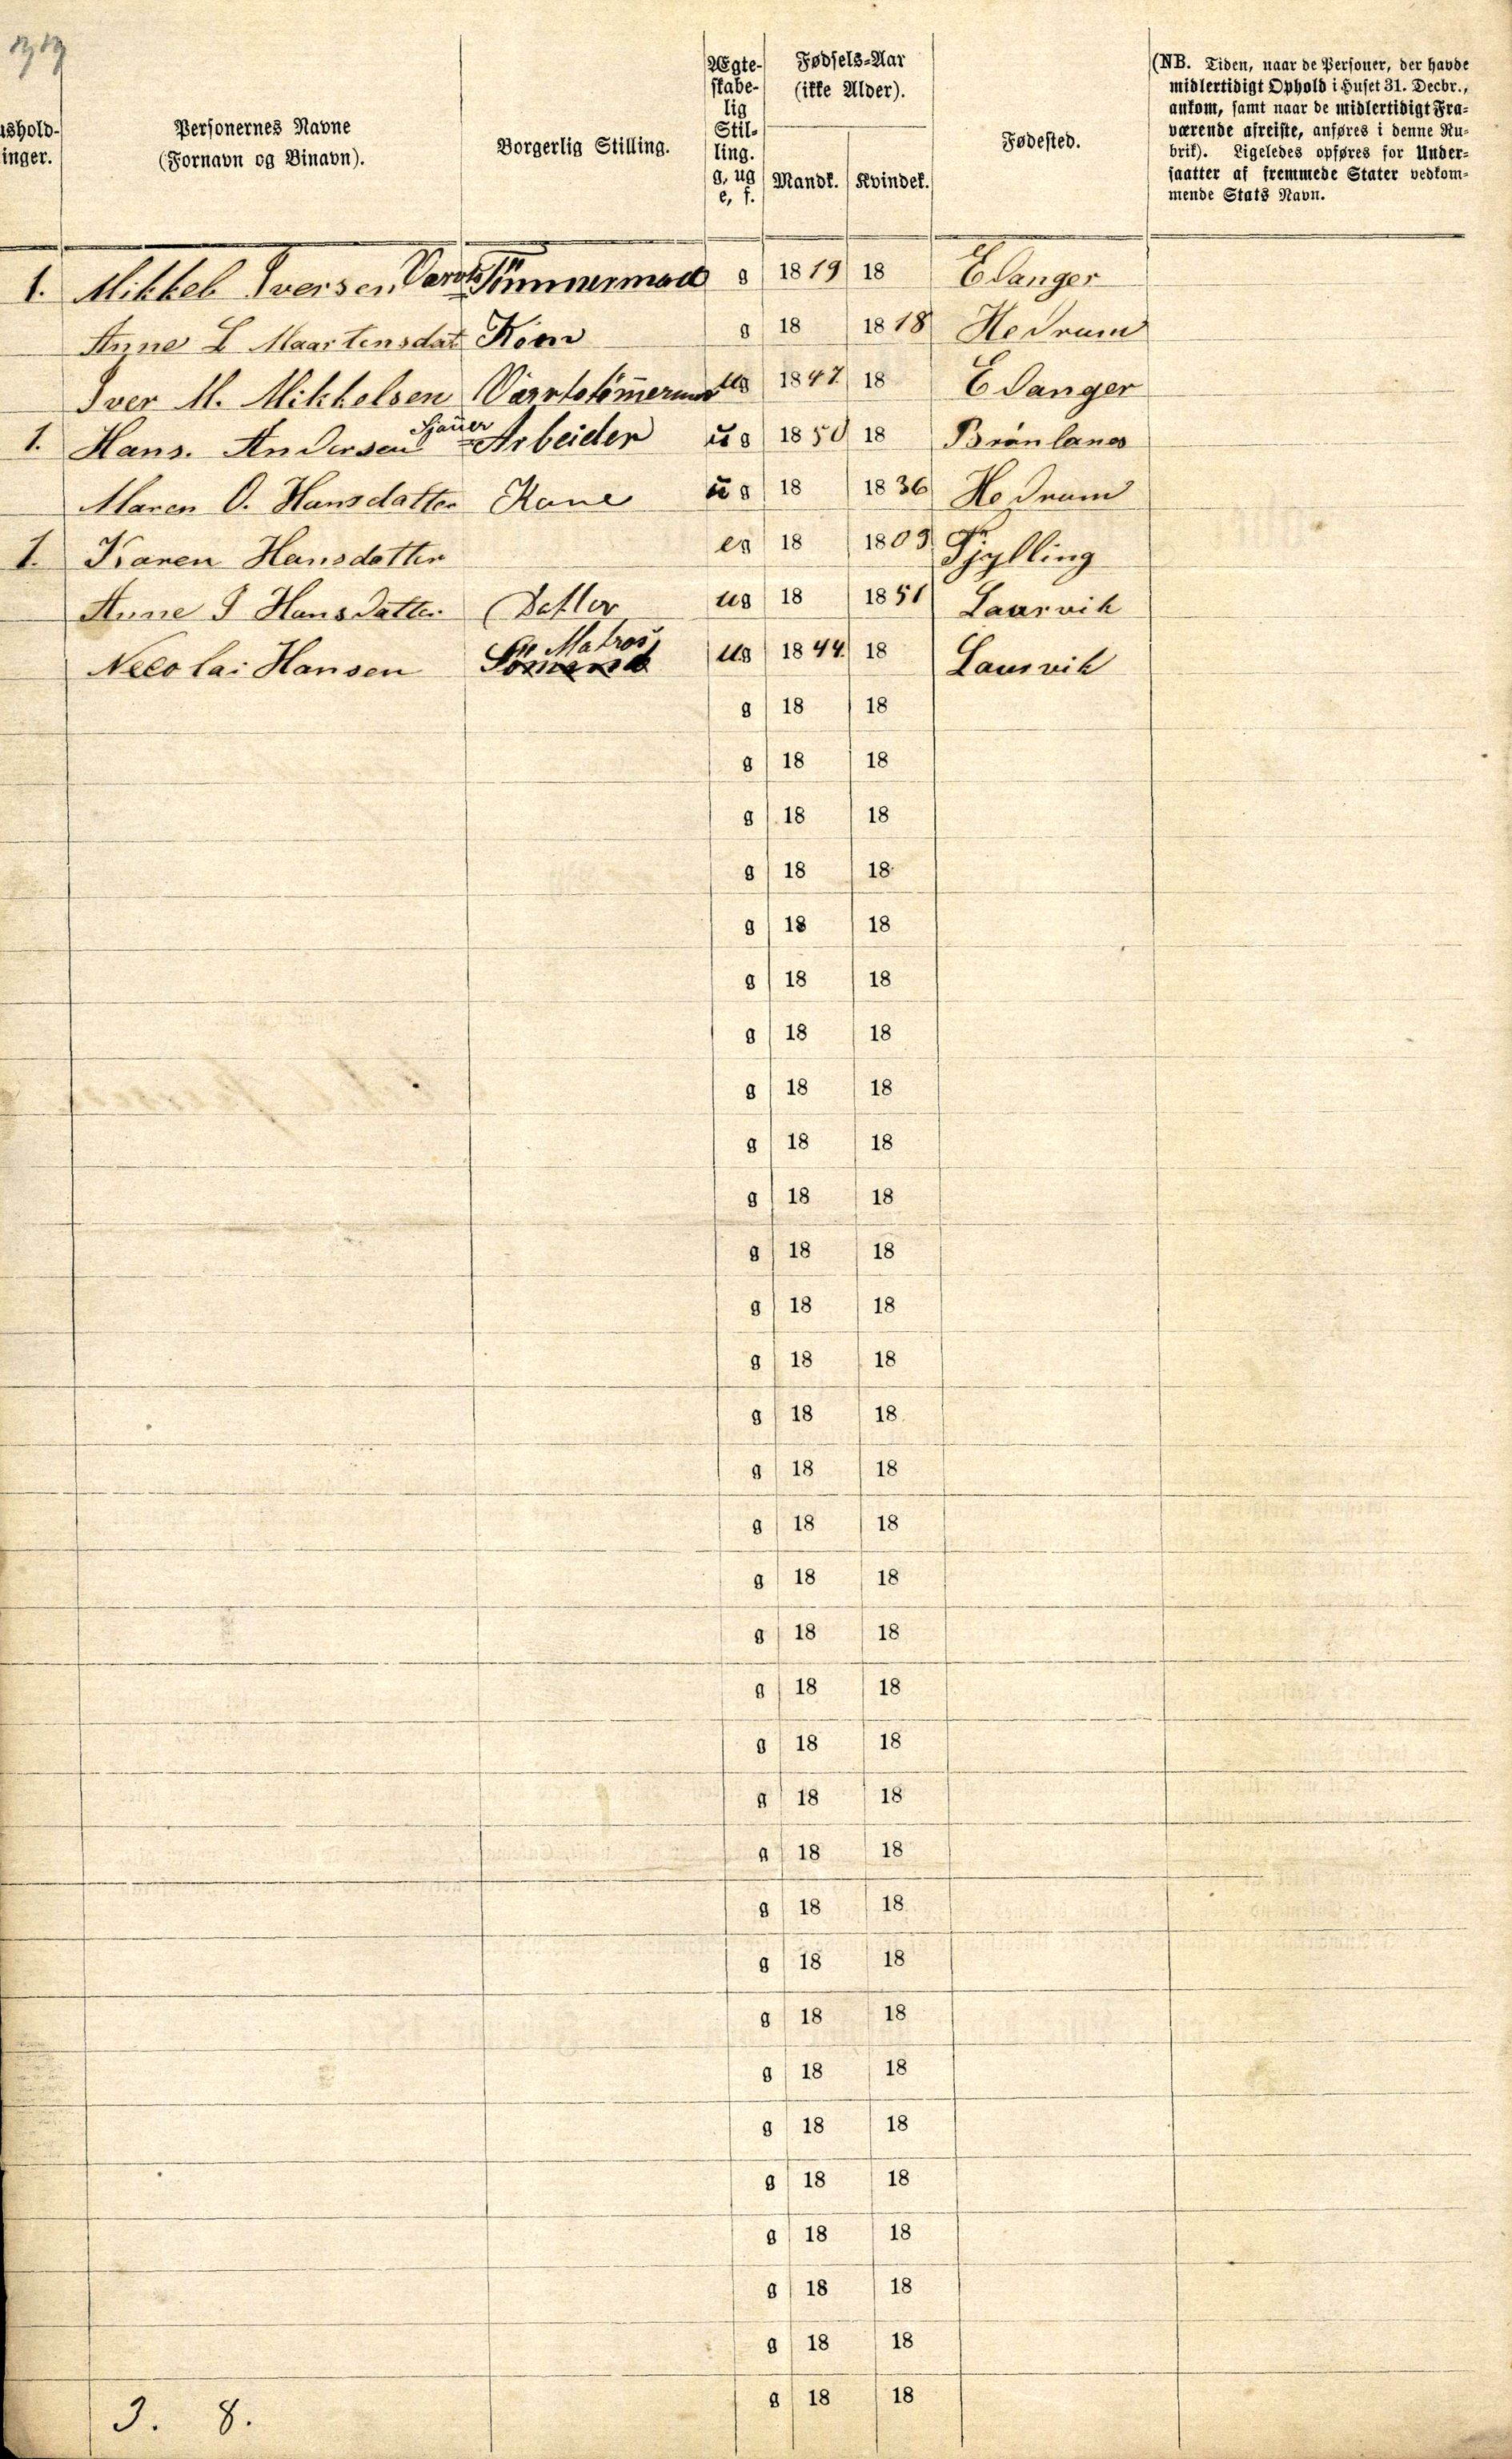 ushold-
inger.
Personernes Navne
(Fornavn og Binavn).
Borgerlig Stilling.
Ægte-
skabe-
lig
Stil-
ling.
g, ug
e, f.
Fødsels-Aar
(ikke Alder).
Mandk.
Kvindek.
Fødested.
(NB. Tiden, naar de Personer, der havde
midlertidigt Ophold i Huset 31. Decbr.,
ankom, samt naar de midlertidigt Fra-
værende afreiste, anføres i denne Ru-
brik). Ligeledes opføres for Under-
saatter af fremmede Stater vedkom-
mende Stats Navn.
1. Mikkel Iversen Værfts Tømmermand g 1819 18 Edanger
Anne L Maartensdat Kone g 18 1818 Hedrum
Iver M. Mikkelsen Værftstømermd ug 1847. 18 Edanger
1. Hans. Andersen Sjauer Arbeider ug 1850 18 Brønlanes
Maren O. Hansdatter Kone ug 18 1836 Hedrum
1. Karen Hansdatter eg 18 1809 Tjylling
Anne I Hansdatter Datter ug 18 1851 Laurvik
Matros
Necolai Hansen Sømand ug 1844. 18 Laurvik
g 18 18
g 18 18
g 18 18
g 18 18
g 18 18
g 18 18
g 18 18
g 18 18
g 18 18
g 18 18
g 18 18
g 18 18
g 18 18
g 18 18
g 18 18
g 18 18
g 18 18
g 18 18
g 18 18
g 18 18
g 18 18
g 18 18
g 18 18
g 18 18
g 18 18
g 18 18
g 18 18
g 18 18
g 18 18
g 18 18
g 18 18
g 18 18
3. 8.